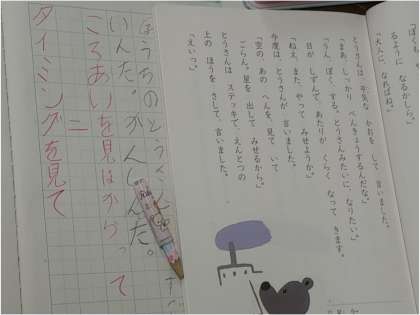 るそうに なるかしら。」
「大人に なればね。」
とうさんは 平気な かおを して 言いました。
「まあ、しっかり べんきょうするんだな。」
「うん、ぼく する。とうさんみたいに、なりたい。」
日が しずんで、あたりが くらく なって きます。
「ねえ、また、やって みせようか。」
今度は とうさんが 言いました。
「空の あの へんを 見て いて
ごらん。星を 出して みせるから。」
とうさんは ステッキで、えんとつの
上の ほうを さして、言いました。
「えいっ。」
ころあいを見はからって
=
タイミングを見て